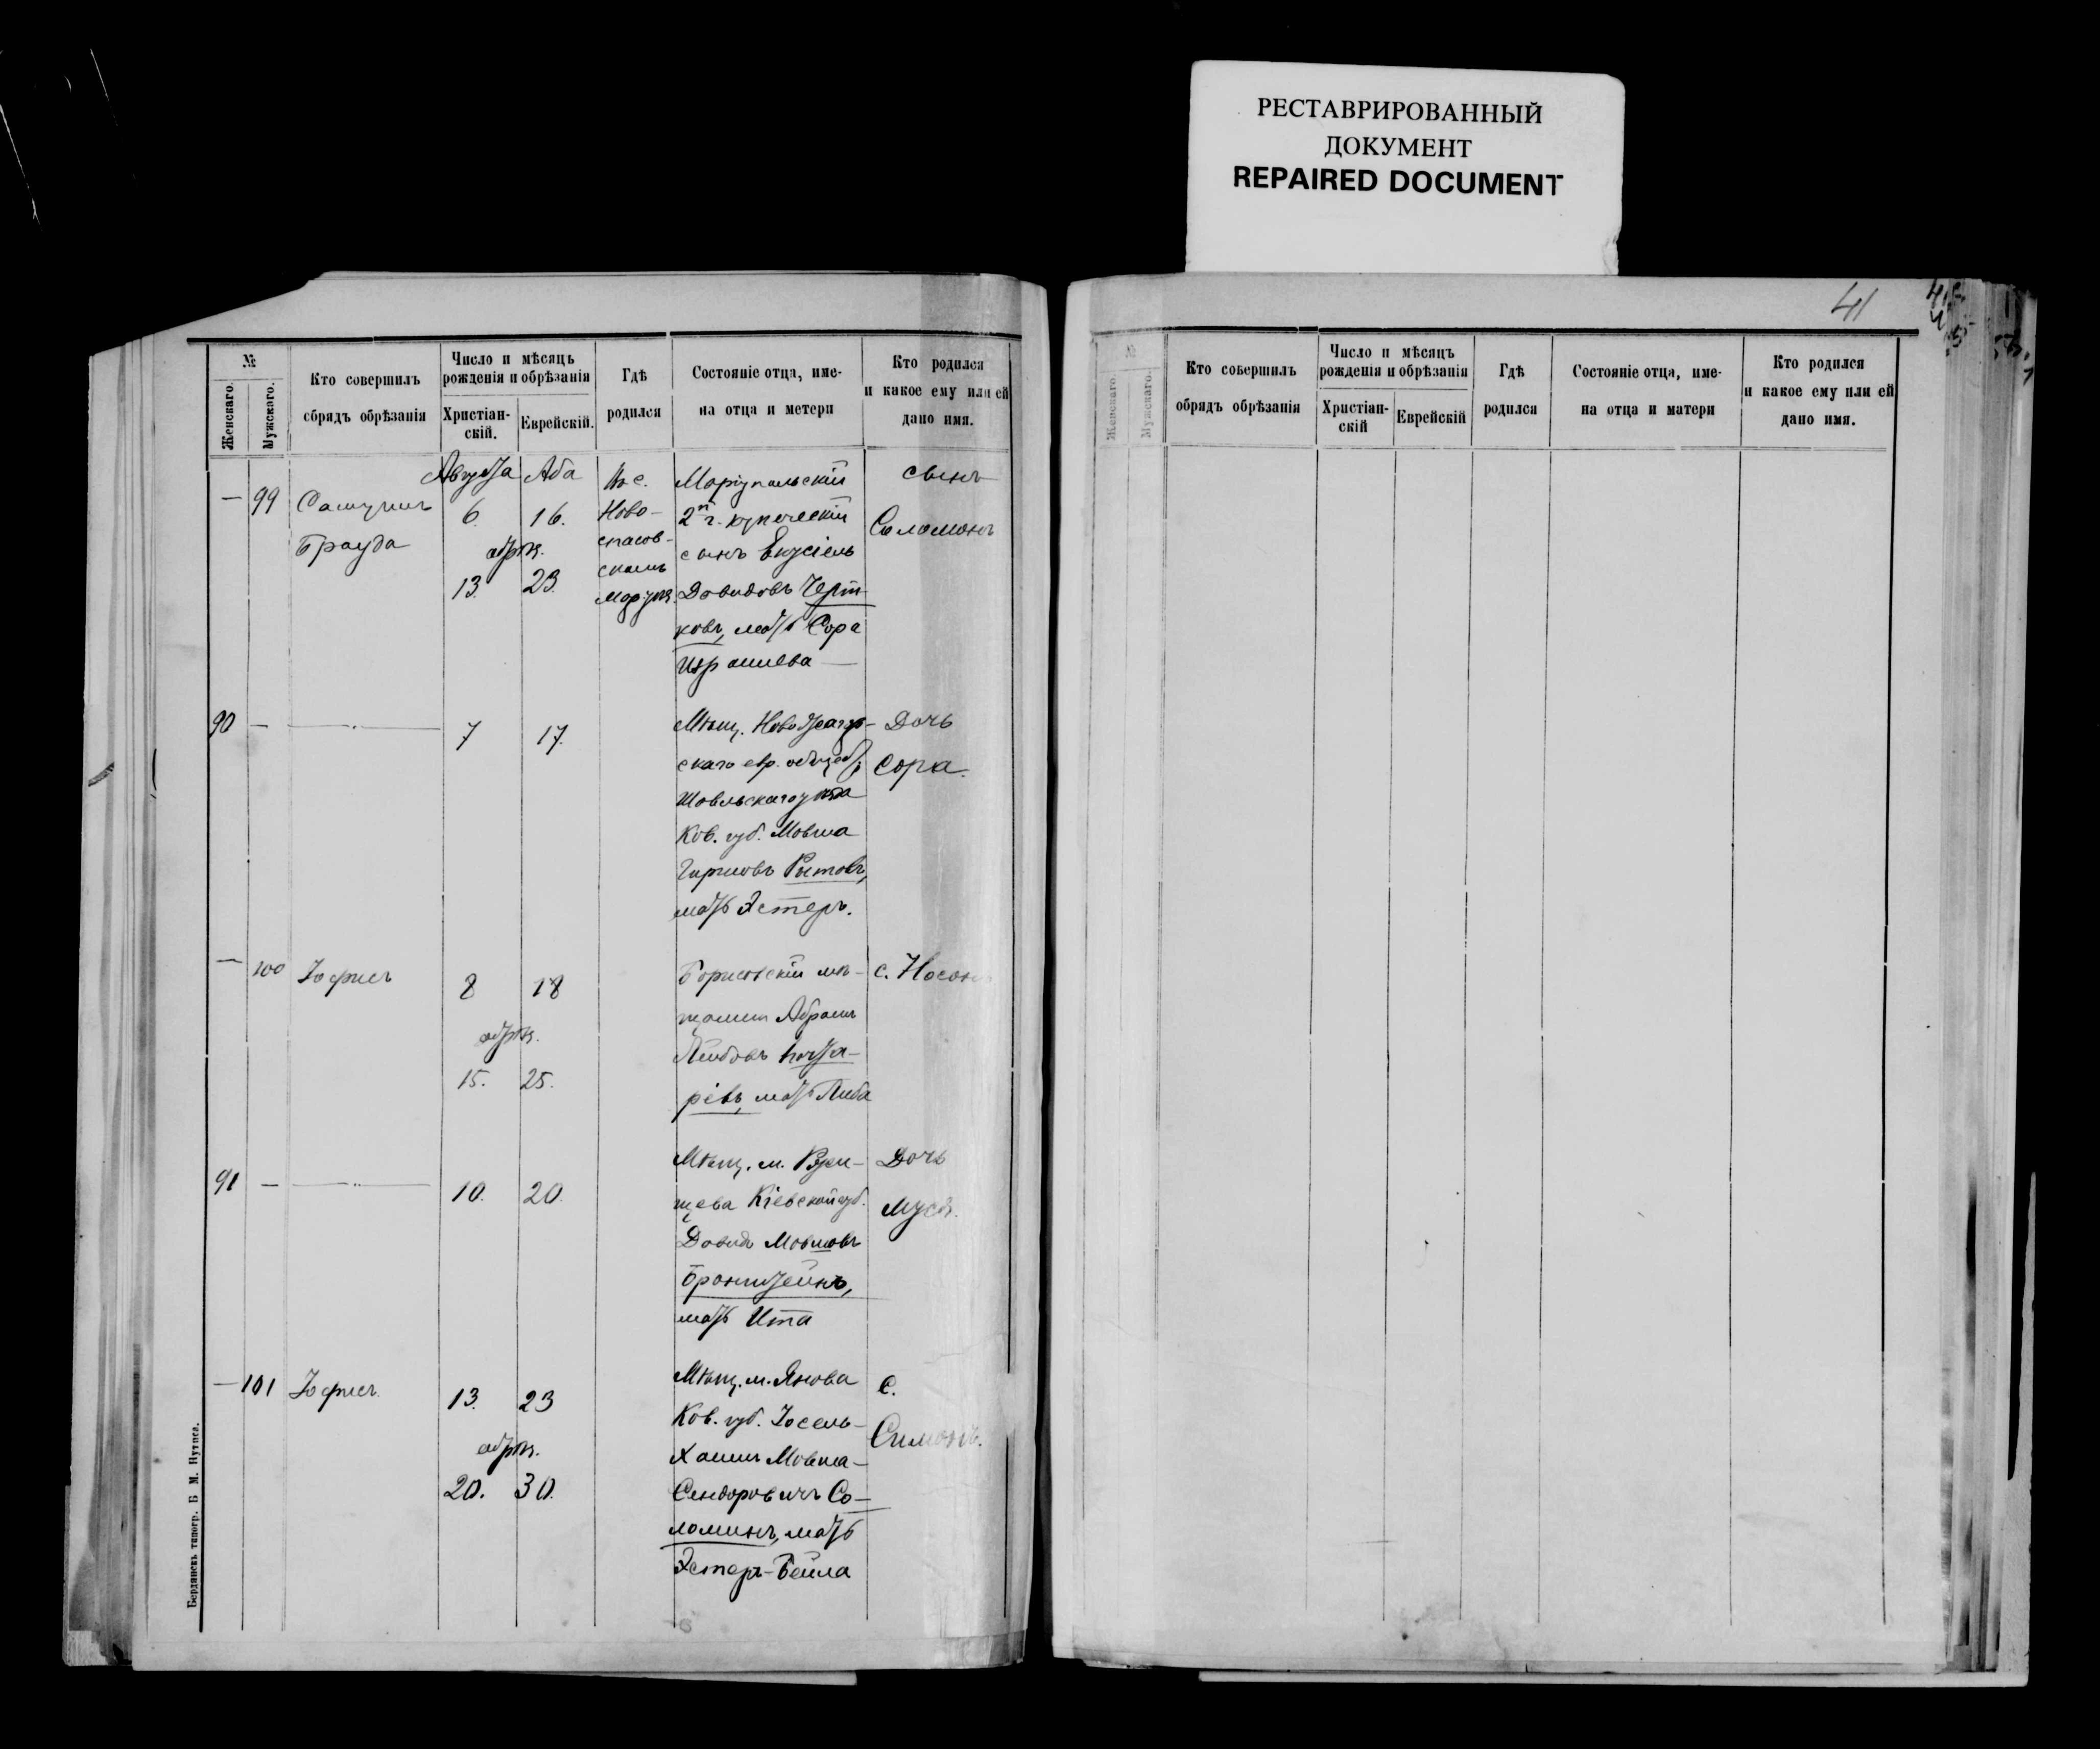 РЕСТАВРИРОВАННЫЙ
ДОКУМЕНТ
REPAIRED DOCUMENT
41
№
Женскаго.
Мужскаго.
Кто совершилъ
сбрядъ обрѣзанія
Число и мѣсяцъ
рожденія и обрѣзанія
Христіан-
скій.
Еврейскій.
Гдѣ
родился
Состояніе отца, име-
на отца и метери
Кто родился
и какое ему или ей
дано имя.
Августа Аба
— 99
Брауда
6. 16.
обрѣз.
13. 23.
Ново-
спасов-
Маріупольскій
2й г. купеческій
сынъ Екусіель
Довидовъ Черт-
ковъ, мать Сора
Израилева —
сынъ
Соломонъ
90 —
7 17.
Мѣщ.
скаго евр. общест.
Шавльскаго уѣзда
Ков. губ. Мовша
мать Эстеръ.
Дочь
Сора.
— 100 Іофисъ
8 18
обрѣз.
15. 25.
Борисовскій мѣ-
щанин Абрамъ
Лейбовъ
мать Либа
с. Носонъ
91 —
10. 20.
Мѣщ. м. Ржи-
щева Кіевской губ.
Довидъ Мовшовъ
Бронштейнъ,
мать Ита
Дочь
Муся.
— 101 Іофисъ.
13. 23
обрѣз.
20. 30.
Мѣщ. м. Янова
Ков. губ. Іосель-
Хаимъ Мовша-
Сендоровичъ Со-
ломинъ, мать
Эстеръ-Бейла
С.
Симонъ.
Бердянскъ типогр. Б М. Нутиса.
№
Женскаго.
Мужскаго.
Кто совершилъ
обрядъ обрѣзанія
Число и мѣсяцъ
рожденія и обрѣзанія
Христіан-
скій
Еврейскій
Гдѣ
родился
Состояніе отца, име-
на отца и матери
Кто родился
и какое ему или ей
дано имя.